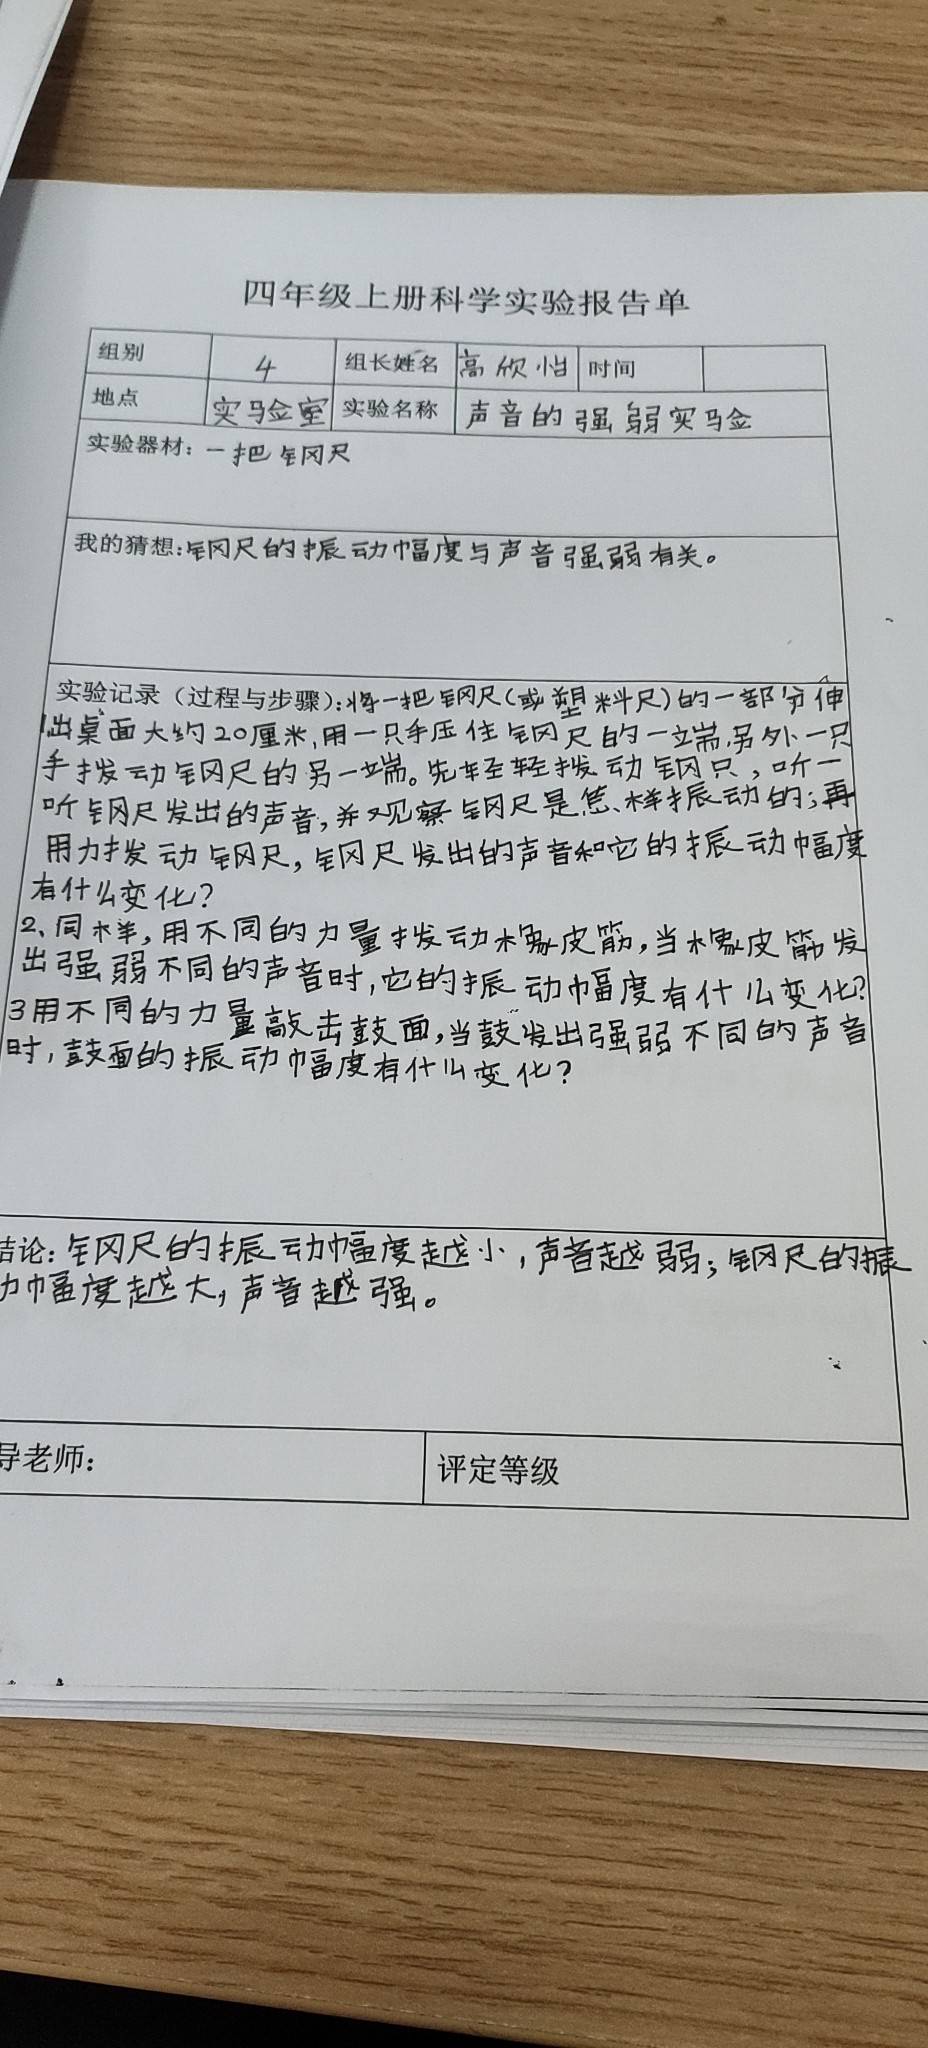 四年级上册科学实验报告单
组别 4 组长姓名 高欣怡 时间
地点 实验室 实验名称 声音的强弱实验
实验器材：一把钢尺
我的猜想：钢尺的振动幅度与声音强弱有关。
实验记录（过程与步骤）：将一把钢尺(或塑料尺)的一部分伸
出桌面大约20厘米,用一只手压住钢尺的一端,另外一只
手拨动钢尺的另一端。先轻轻拨动钢尺，听一
听钢尺发出的声音，并观察钢尺是怎样振动的；再
用力拨动钢尺，钢尺发出的声音和它的振动幅度
有什么变化？
2、同样，用不同的力量拨动橡皮筋，当橡皮筋发
出强弱不同的声音时，它的振动幅度有什么变化？
3用不同的力量敲击鼓面，当鼓发出强弱不同的声音
时，鼓面的振动幅度有什么变化？
结论：钢尺的振动幅度越小，声音越弱；钢尺的振
动幅度越大，声音越强。
导老师： 评定等级